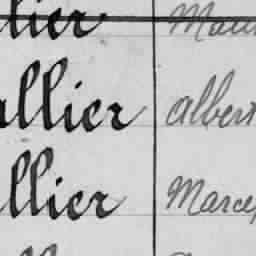 llier Mau
allier albert
llier Marce